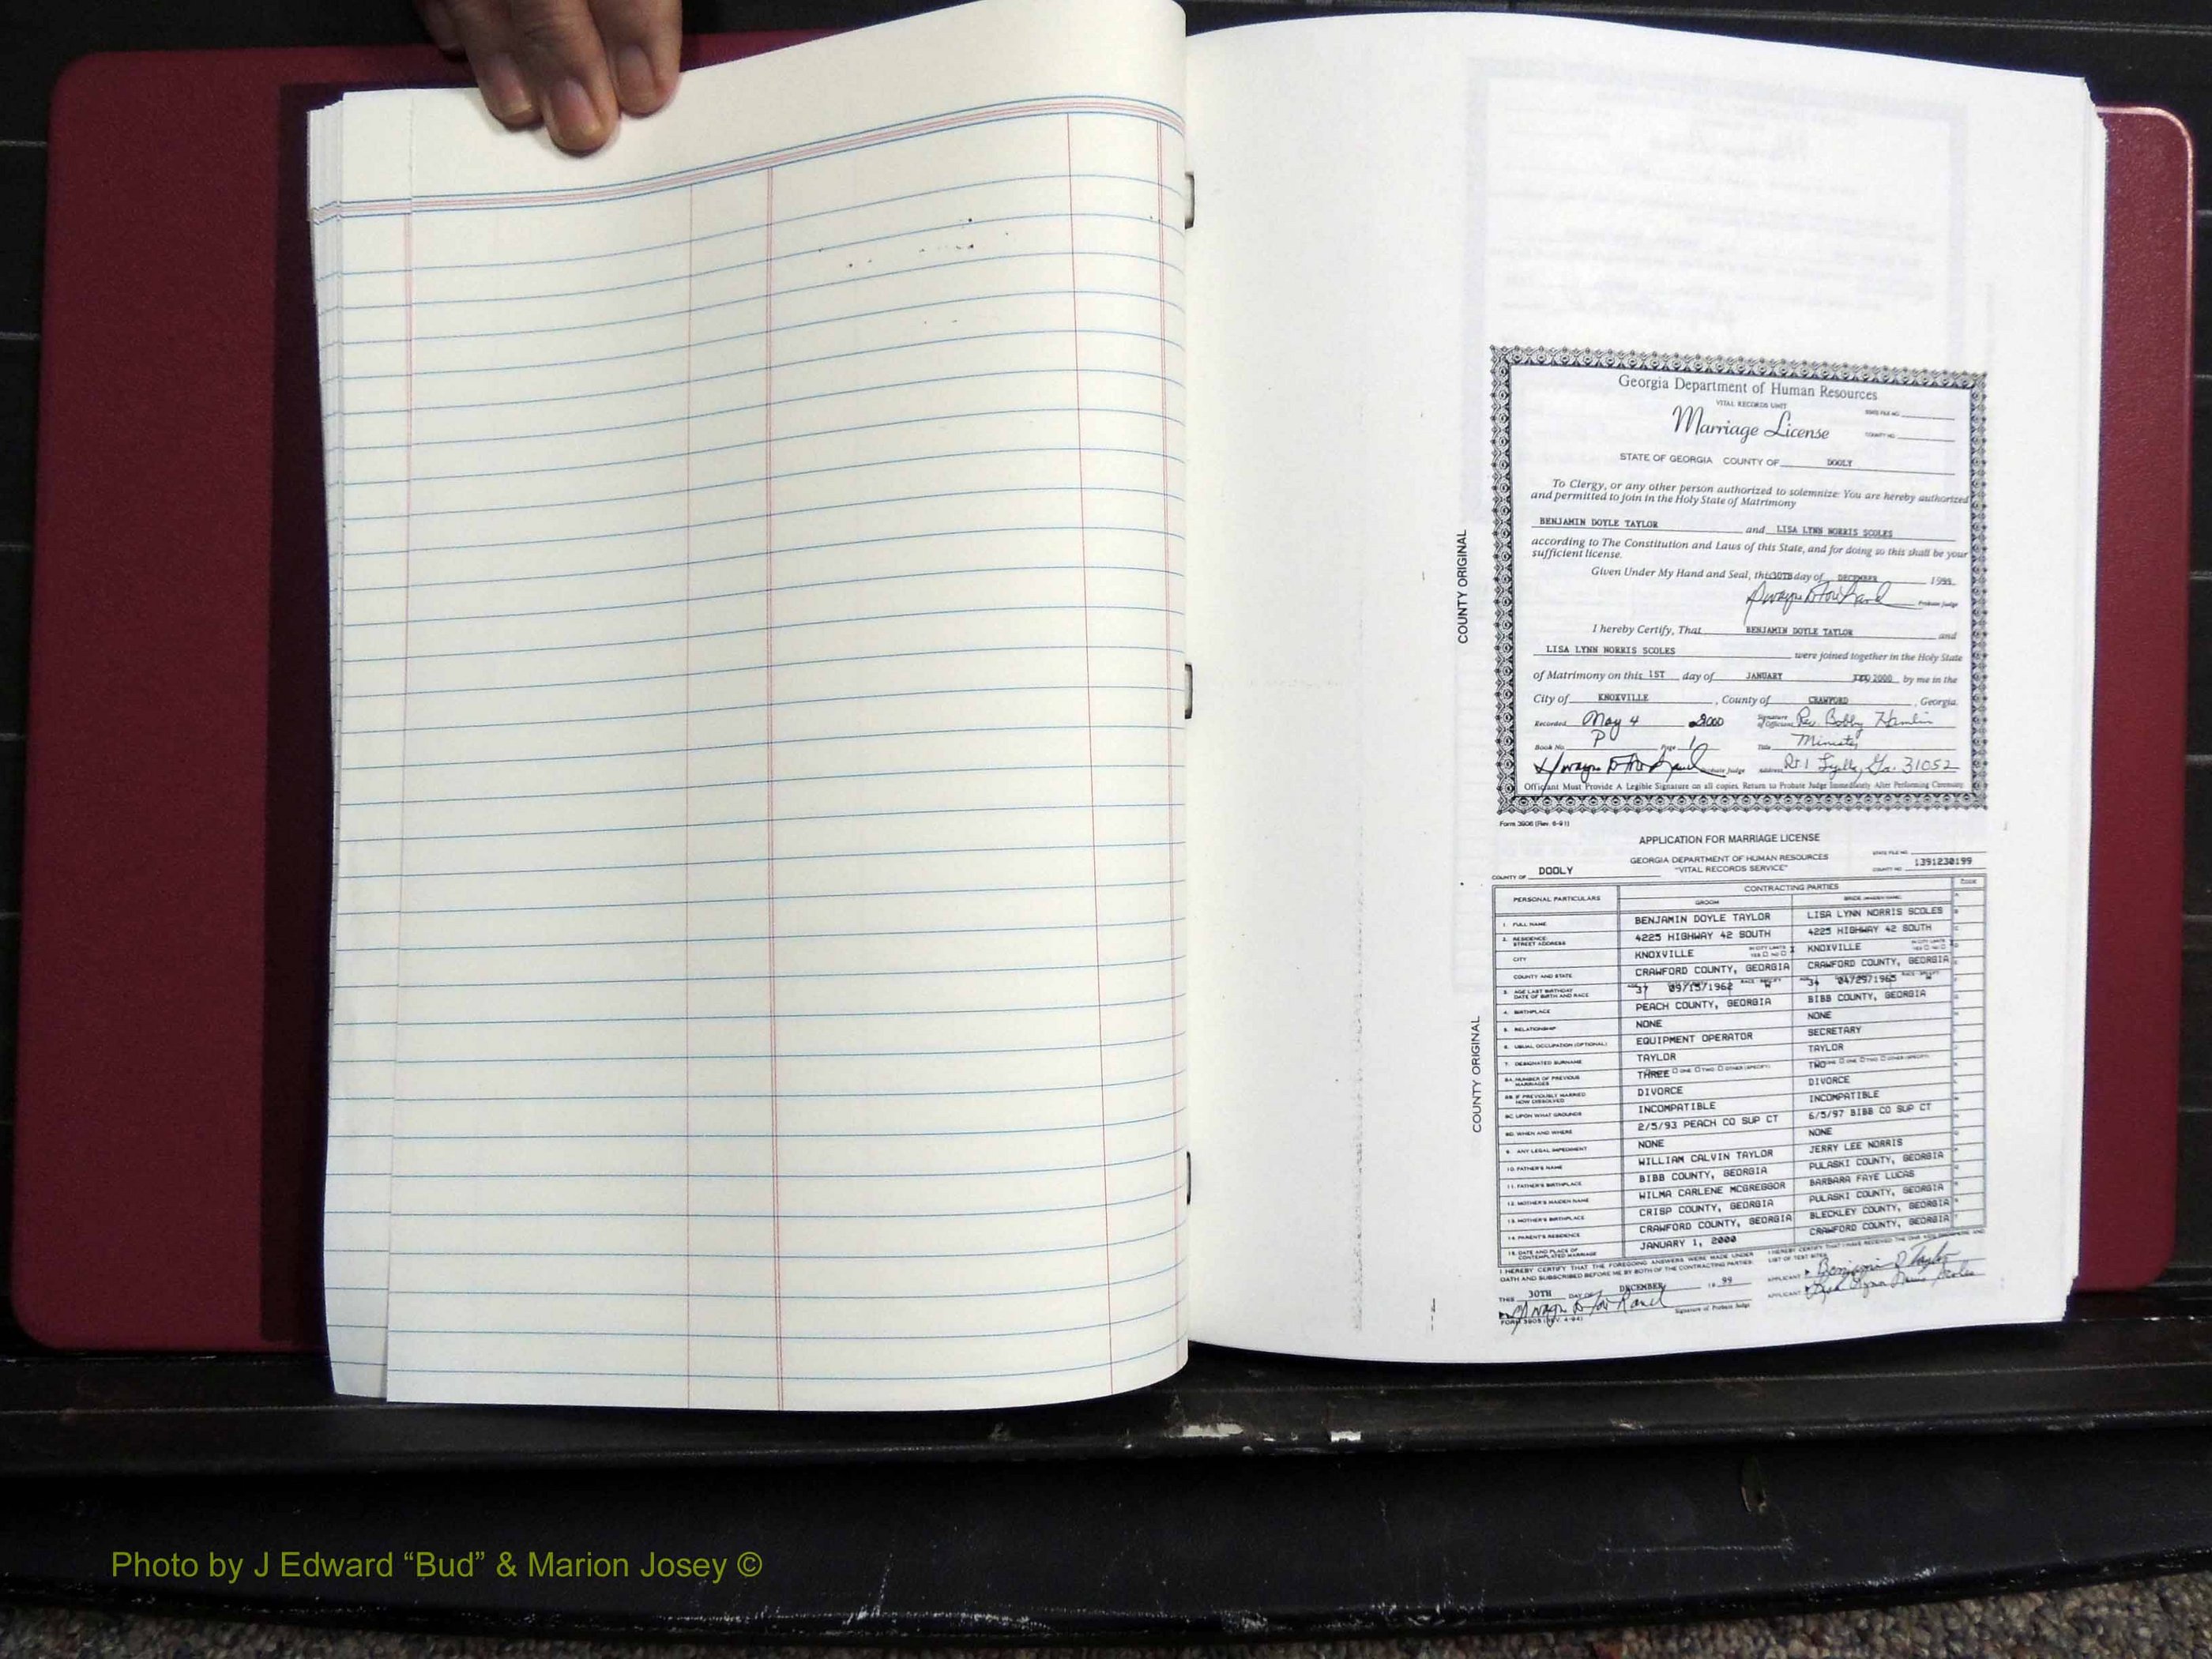 Georgia Department of Human Resources
VITAL RECORDS UNIT
STATE FILE NO.
Marriage License
COUNTY NO.
STATE OF GEORGIA COUNTY OF DOOLY
To Clergy, or any other person authorized to solemnize: You are hereby authorized
and permitted to join in the Holy State of Matrimony
BENJAMIN DOYLE TAYLOR and LISA LYNN NORRIS SCOLES
according to The Constitution and Laws of this State, and for doing so this shall be your
sufficient license.
Given Under My Hand and Seal, this 30TH day of DECEMBER 1999.
Probate Judge
I hereby Certify, That BENJAMIN DOYLE TAYLOR and
LISA LYNN NORRIS SCOLES were joined together in the Holy State
of Matrimony on this 1ST day of JANUARY 2000 by me in the
City of KNOXVILLE, County of CRAWFORD, Georgia.
Recorded May 4 2000 Signature of Officiant Rev. Bobby Hamlin
Book No. P Page 1 Title Minister
Probate Judge Address Rt 1 Ga. 31052
Officiant Must Provide A Legible Signature on all copies. Return to Probate Judge Immediately After Performing Ceremony
COUNTY ORIGINAL
Form 3906 (Rev. 6-91)
APPLICATION FOR MARRIAGE LICENSE
GEORGIA DEPARTMENT OF HUMAN RESOURCES
"VITAL RECORDS SERVICE"
STATE FILE NO.
COUNTY OF DOOLY
COUNTY NO. 1391230199
PERSONAL PARTICULARS CONTRACTING PARTIES CODE
GROOM BRIDE (MAIDEN NAME)
1. FULL NAME BENJAMIN DOYLE TAYLOR LISA LYNN NORRIS SCOLES
2. RESIDENCE: STREET ADDRESS 4225 HIGHWAY 42 SOUTH 4225 HIGHWAY 42 SOUTH
CITY KNOXVILLE IN CITY LIMITS YES NO X KNOXVILLE IN CITY LIMITS YES NO
COUNTY AND STATE CRAWFORD COUNTY, GEORGIA CRAWFORD COUNTY, GEORGIA
3. AGE LAST BIRTHDAY DATE OF BIRTH AND RACE 37 09/15/1962 W 34 04/29/1965 W
4. BIRTHPLACE PEACH COUNTY, GEORGIA BIBB COUNTY, GEORGIA
5. RELATIONSHIP NONE NONE
6. USUAL OCCUPATION (OPTIONAL) EQUIPMENT OPERATOR SECRETARY
7. DESIGNATED SURNAME TAYLOR TAYLOR
8A. NUMBER OF PREVIOUS MARRIAGES THREE ONE TWO OTHER (SPECIFY) TWO ONE TWO OTHER (SPECIFY)
8B. IF PREVIOUSLY MARRIED HOW DISSOLVED DIVORCE DIVORCE
8C. UPON WHAT GROUNDS INCOMPATIBLE INCOMPATIBLE
8D. WHEN AND WHERE 2/5/93 PEACH CO SUP CT 6/5/97 BIBB CO SUP CT
9. ANY LEGAL IMPEDIMENT NONE NONE
10. FATHER'S NAME WILLIAM CALVIN TAYLOR JERRY LEE NORRIS
11. FATHER'S BIRTHPLACE BIBB COUNTY, GEORGIA PULASKI COUNTY, GEORGIA
12. MOTHER'S MAIDEN NAME WILMA CARLENE MCGREGGOR BARBARA FAYE LUCAS
13. MOTHER'S BIRTHPLACE CRISP COUNTY, GEORGIA PULASKI COUNTY, GEORGIA
14. PARENT'S RESIDENCE CRAWFORD COUNTY, GEORGIA BLECKLEY COUNTY, GEORGIA
15. DATE AND PLACE OF CONTEMPLATED MARRIAGE JANUARY 1, 2000 CRAWFORD COUNTY, GEORGIA
I HEREBY CERTIFY THAT THE FOREGOING ANSWERS WERE MADE UNDER
OATH AND SUBSCRIBED BEFORE ME BY BOTH OF THE CONTRACTING PARTIES.
I HEREBY CERTIFY THAT I HAVE RECEIVED THE AIDS BROCHURE AND
LIST OF TEST SITES
THIS 30TH DAY OF DECEMBER 19 99
APPLICANT Benjamin D Taylor
APPLICANT Scoles
Signature of Probate Judge
FORM 3905 (REV. 4-94)
COUNTY ORIGINAL
Photo by J Edward “Bud” & Marion Josey ©